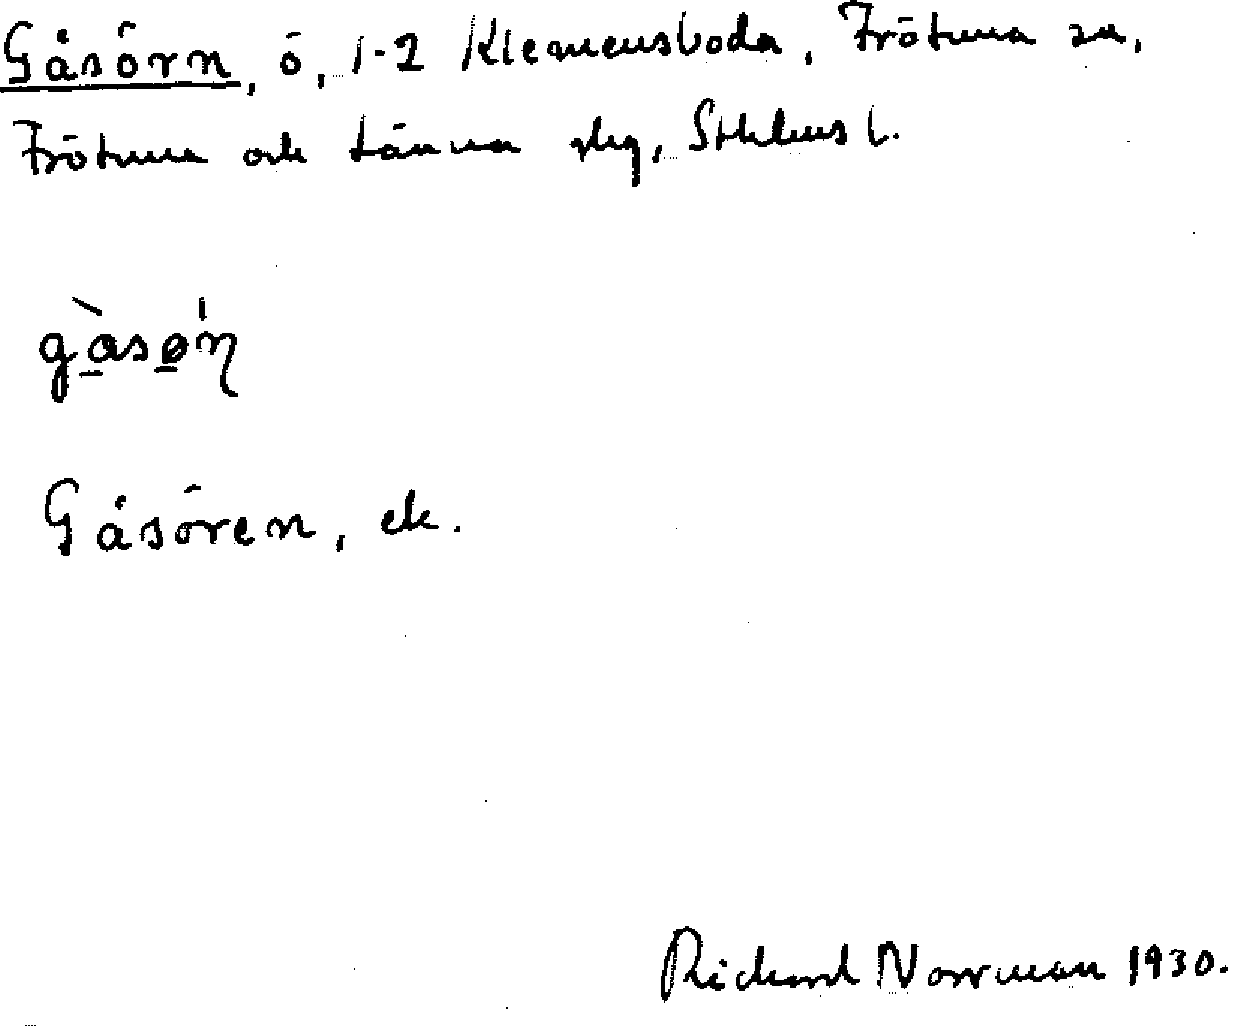 Gåsörn, ö, 1-2 Klemensboda, Frötuna sn,
Frötuna och Länna skg, Sthlms l.
gàsø̀'n
Gåsören, ek.
Richard Norrman 1930.